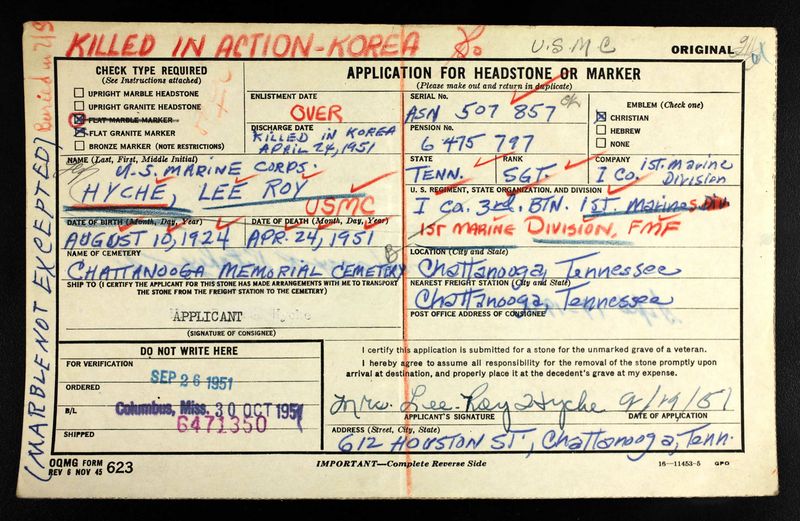 KILLED IN ACTION - KOREA
U.S.M.C
ORIGINAL
(MARBLE NOT EXCEPTED)
Buried in
CHECK TYPE REQUIRED
(See Instructions attached)
UPRIGHT MARBLE HEADSTONE
UPRIGHT GRANITE HEADSTONE
FLAT MARBLE MARKER
FLAT GRANITE MARKER
BRONZE MARKER (NOTE RESTRICTIONS)
APPLICATION FOR HEADSTONE OR MARKER
(Please make out and return in duplicate)
ENLISTMENT DATE
OVER
DISCHARGE DATE
KILLED IN KOREA
APRIL 24, 1951
SERIAL No.
ASN 507 857
OK
PENSION No.
6 475 797
EMBLEM (Check one)
CHRISTIAN
HEBREW
NONE
NAME (Last, First, Middle Initial)
U.S. MARINE CORPS.
HYCHE, LEE ROY
USMC
STATE
TENN.
RANK
SGT.
COMPANY
I Co.
1st. Marine
Division
U. S. REGIMENT, STATE ORGANIZATION, AND DIVISION
I Co. 3rd. BTN. 1ST. Marines Div
1ST MARINE DIVISION, FMF
DATE OF BIRTH (Month, Day, Year)
AUGUST 10, 1924
DATE OF DEATH (Month, Day, Year)
APR. 24, 1951
NAME OF CEMETERY
CHATTANOOGA MEMORIAL CEMETERY
LOCATION (City and State)
Chattanooga, Tennessee
SHIP TO (I CERTIFY THE APPLICANT FOR THIS STONE HAS MADE ARRANGEMENTS WITH ME TO TRANSPORT
THE STONE FROM THE FREIGHT STATION TO THE CEMETERY)
NEAREST FREIGHT STATION (City and State)
Chattanooga, Tennessee
APPLICANT
(SIGNATURE OF CONSIGNEE)
POST OFFICE ADDRESS OF CONSIGNEE
DO NOT WRITE HERE
FOR VERIFICATION
SEP 26 1951
ORDERED
B/L
Columbus, Miss. 30 OCT 1951
6471350
SHIPPED
I certify this application is submitted for a stone for the unmarked grave of a veteran.
I hereby agree to assume all responsibility for the removal of the stone promptly upon
arrival at destination, and properly place it at the decedent's grave at my expense.
Mrs. Lee Roy Hyche 9/19/51
APPLICANT'S SIGNATURE
DATE OF APPLICATION
ADDRESS (Street, City, State)
612 HOUSTON ST., Chattanooga, Tenn.
OQMG FORM
REV 6 NOV 45 623
IMPORTANT—Complete Reverse Side
16—11453-5 GPO